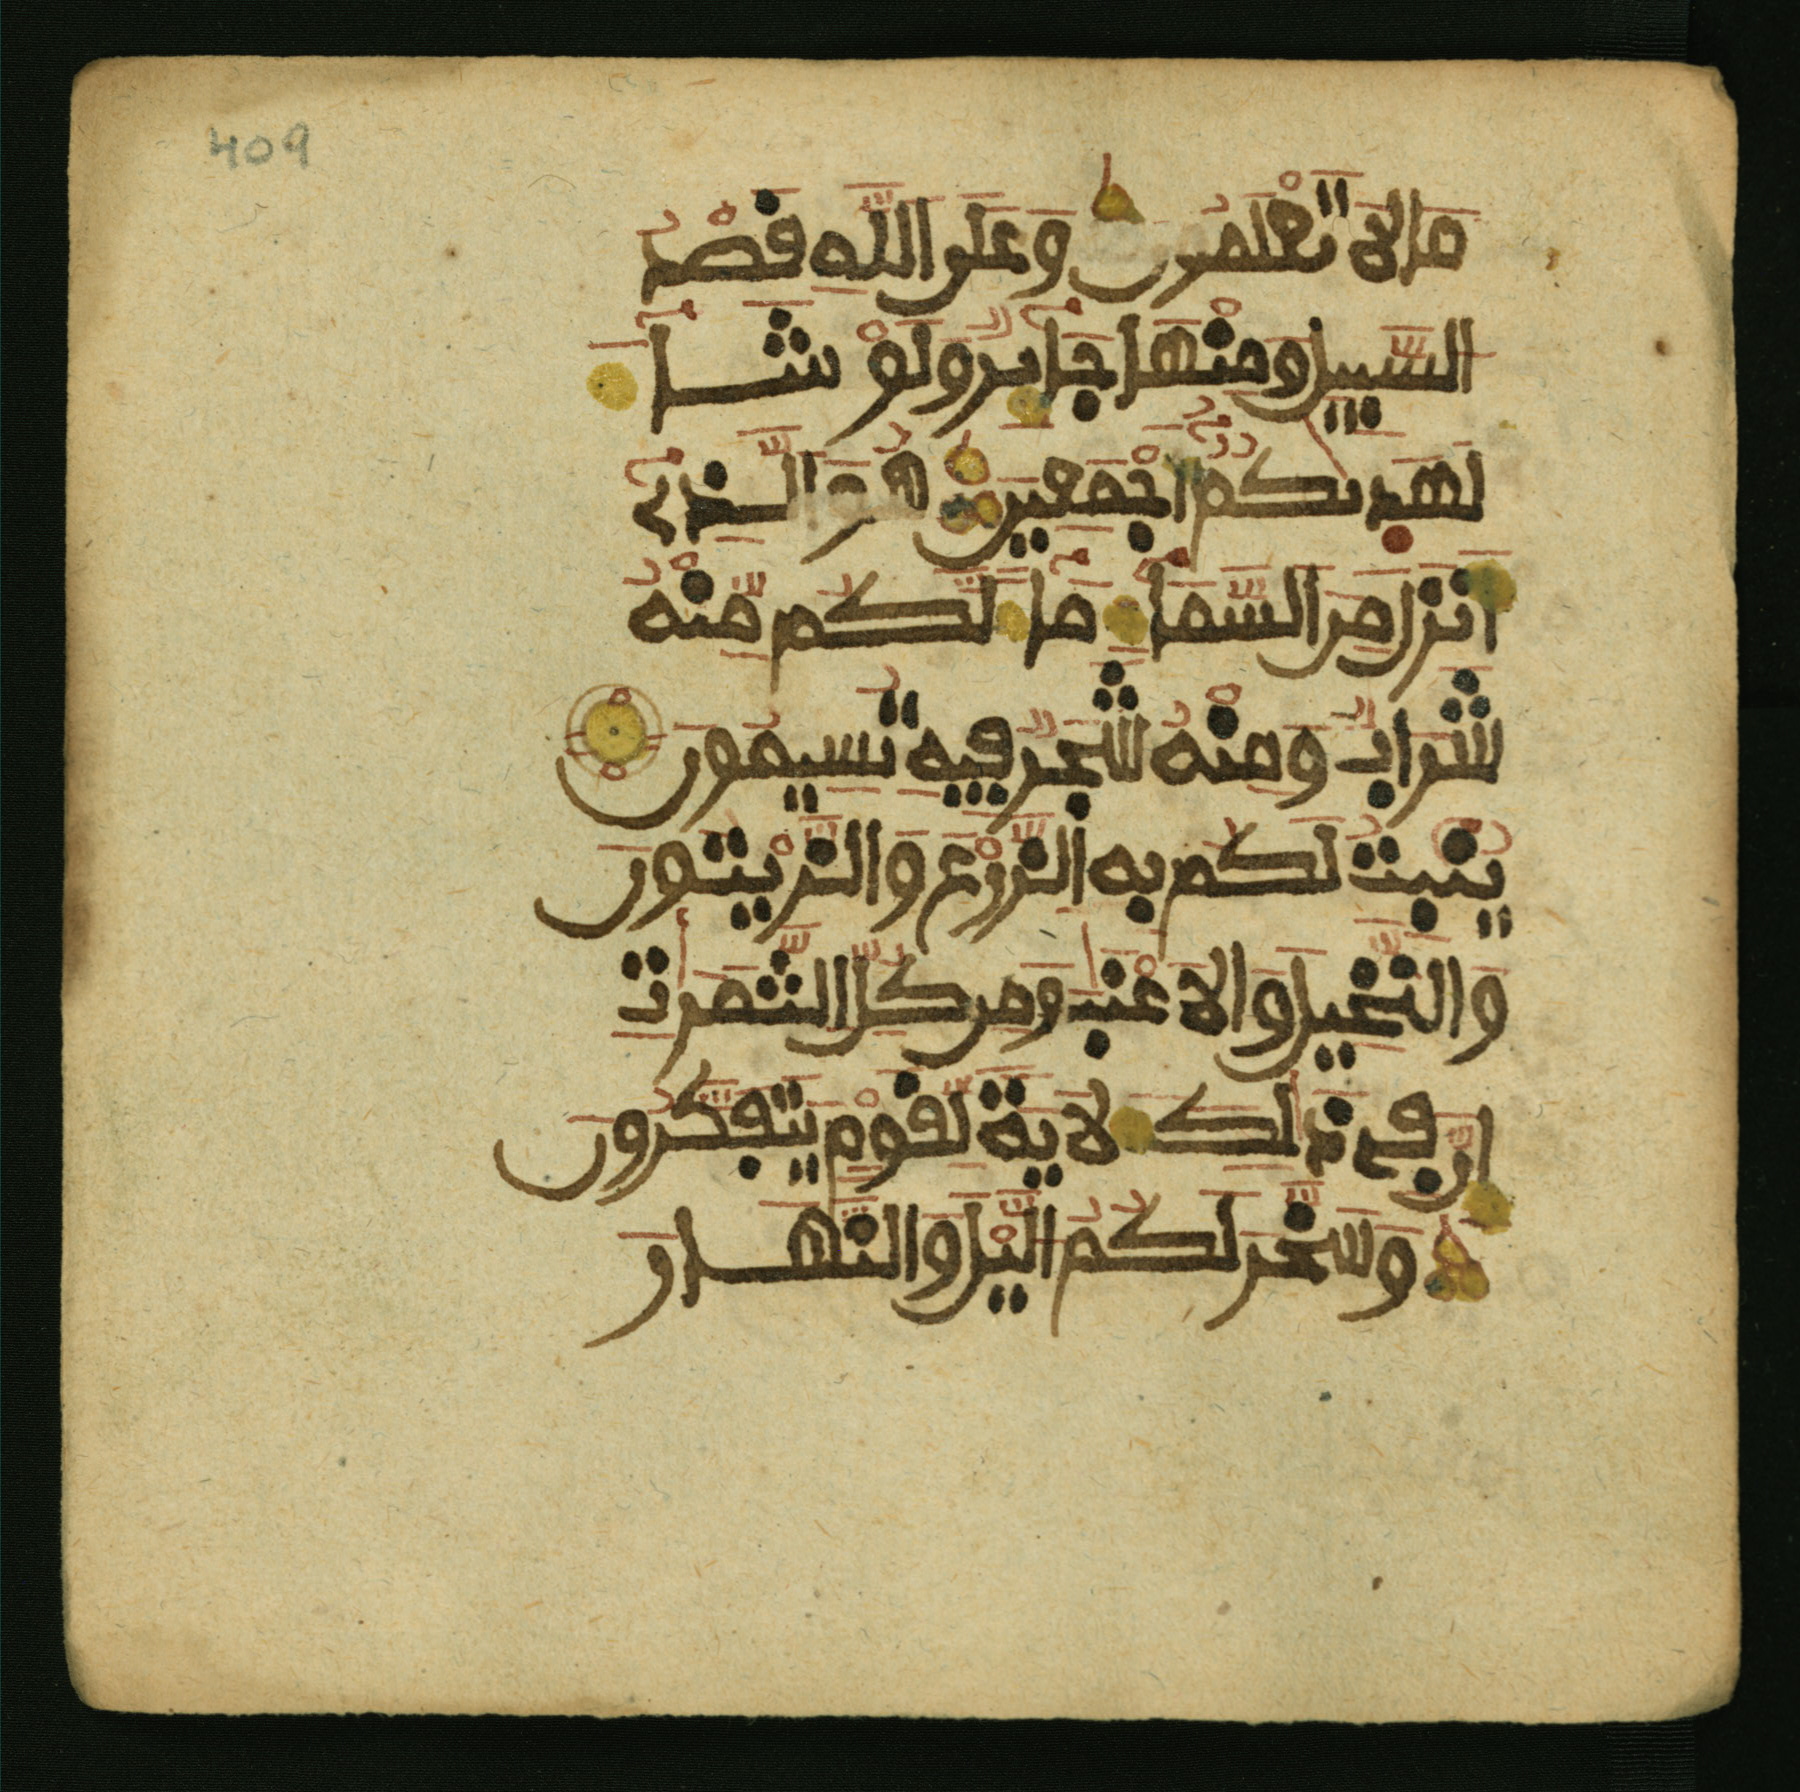 409
ما لا تعلمون وعلى الله قصد
السبيل ومنها جاير ولو شا
لهديكم اجمعين هو الذي
انزل من السما ما لكم منه
شراب ومنه شجر فيه تسيمون
ينبت لكم به الزرع والزيتون
والنخيل والاعنب ومن كل الثمرت
ان في ذلك لاية لقوم يتفكرون
وسخر لكم اليل والنهار